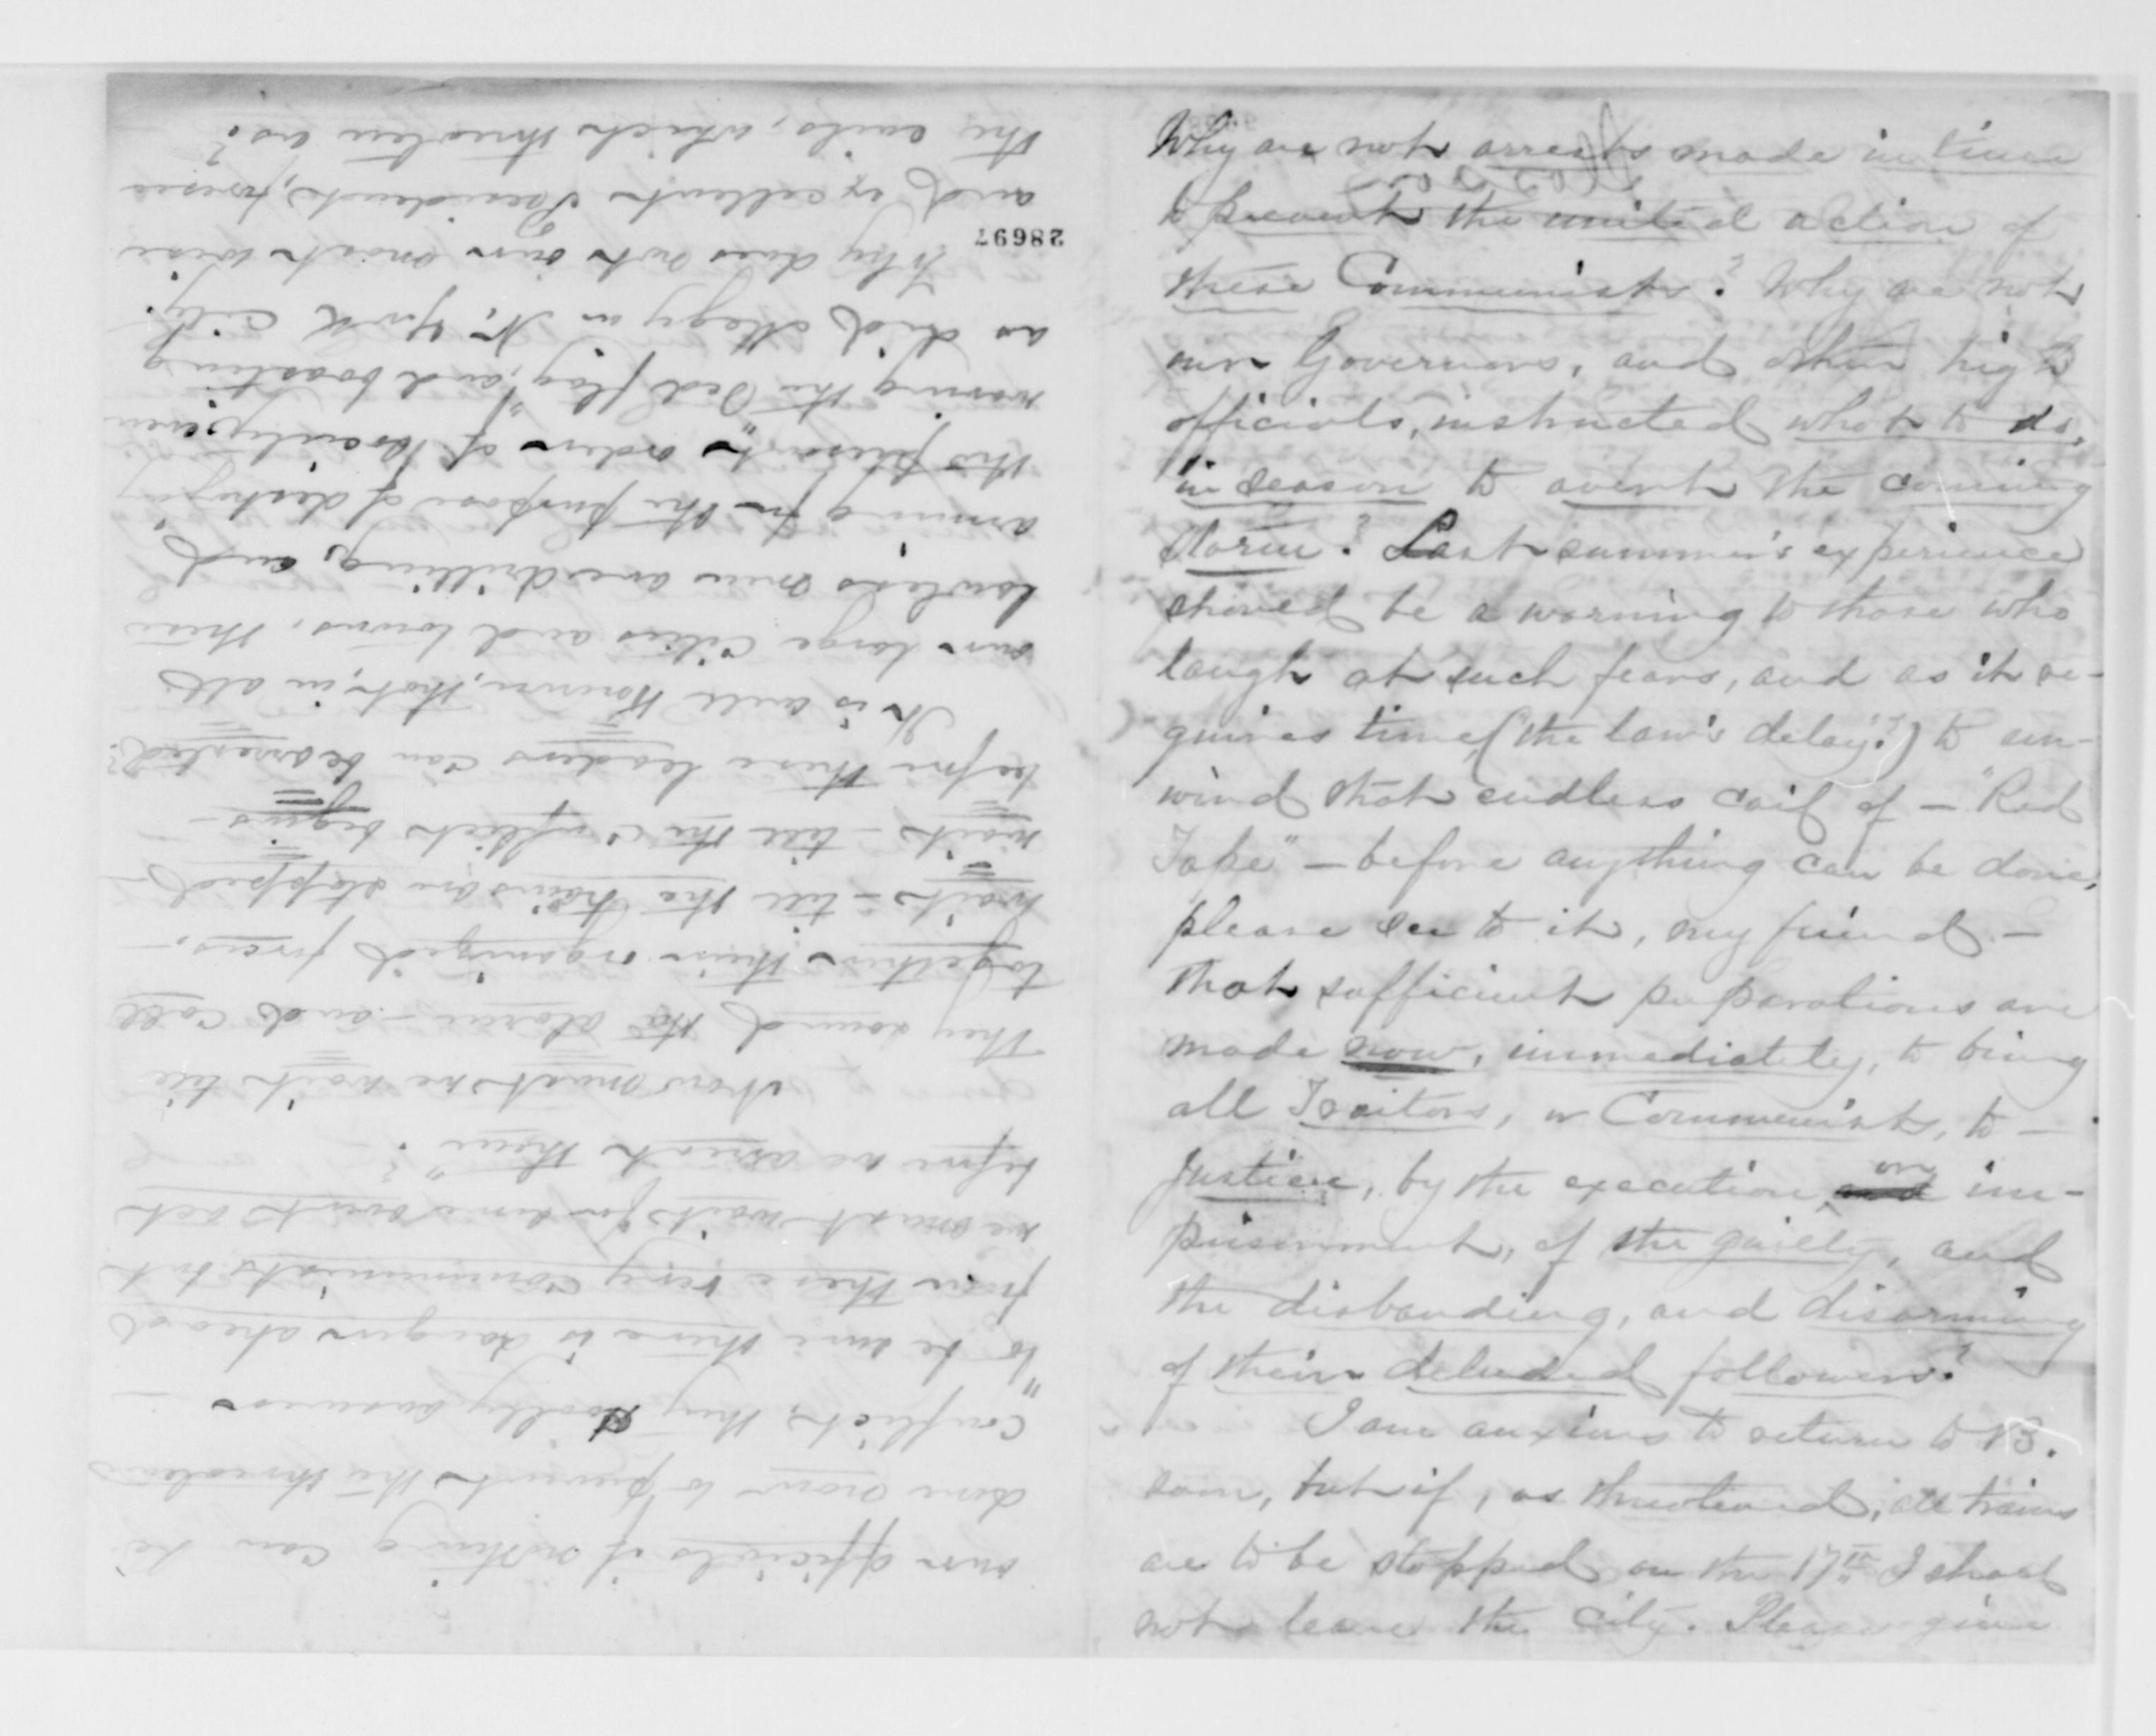 our officials if nothing can be
done now to prevent the threatened
conflict, they coolly answer —
"to be sure there is danger ahead
from these very communists but
we must wait for an overt act
before we arrest them"? —
Now must we wait till
They sound the alarm — and call
together their organized forces. —
wait — till the trains are stopped —
wait — till the conflict begins —
before these leaders can be arrested?
It is well known, that, in all
our large cities and towns, these
lawless men are drilling, and
arming for the purpose of destroying
this present "order of society", even
waving the Red flag, and boasting
as did Megy in N. York City.
Why does not our most wise
28697
and excellent President, foresee
the evils, which threaten us?
Why are not arrests made in time
to prevent the united action of
these Communists? Why are not
our Governors, and other high
officials, instructed what to do,
in season to avert the coming
storm? Last summer's experience
should be a warning to those who
laugh at such fears, and as it re-
quires time (the law's delay?) to un-
wind that endless coil of — "Red
Tape" — before anything can be done,
please see to it, my friend —
that sufficient preparations are
made now, immediately, to bring
all Traitors, or Communist, to —
Justice, by the execution or im-
prisonment, of the guilty, and
the disbanding, and disarming
of their deluded followers?
I am anxious to return to B.
soon, but if, as threatened, all trains
are to be stopped on the 17th I shall
not leave the City. Please give